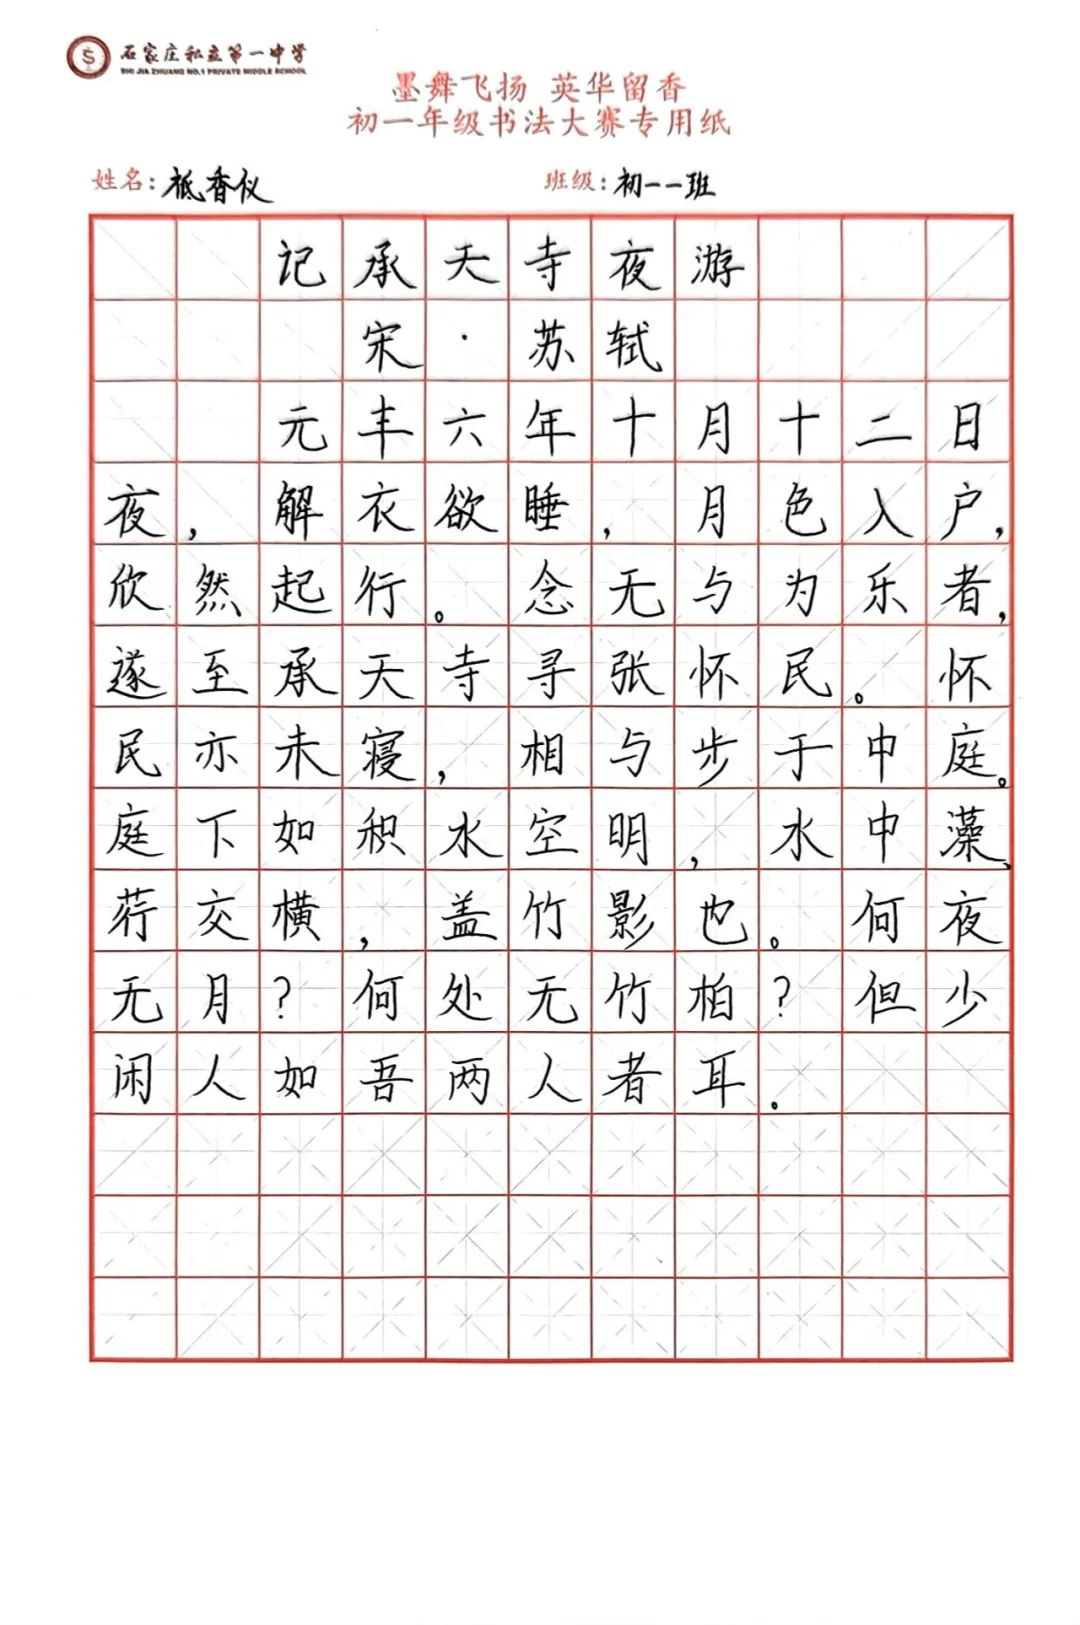 石家庄私立第一中学
SHI JIA ZHUANG NO.1 PRIVATE MIDDLE SCHOOL
墨舞飞扬 英华留香
初一年级书法大赛专用纸
姓名:香仪 班级:初一一班
记承天寺夜游
宋·苏轼
元丰六年十月十二日
夜,解衣欲睡,月色入户,
欣然起行。念无与为乐者,
遂至承天寺寻张怀民。怀
民亦未寝,相与步于中庭。
庭下如积水空明,水中藻、
荇交横,盖竹影也。何夜
无月?何处无竹柏?但少
闲人如吾两人者耳。